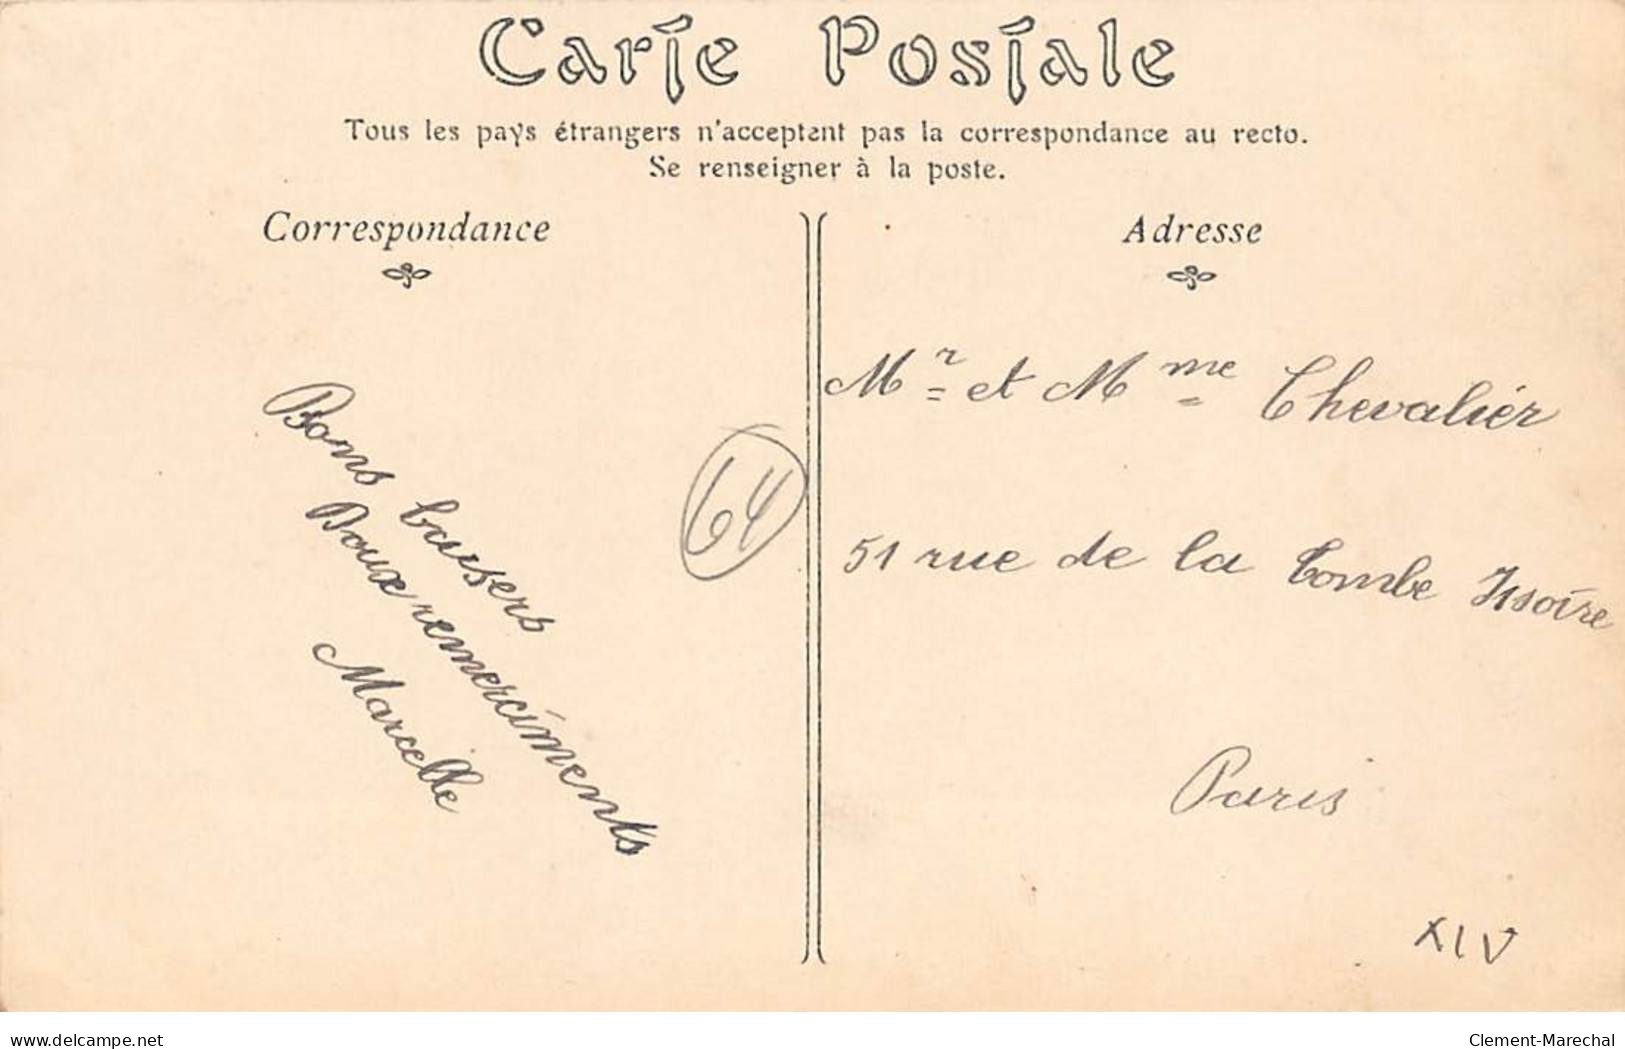 Carte Postale
Tous les pays étrangers n'acceptent pas la correspondance au recto.
Se renseigner à la poste.
Correspondance
Bons baisers
Doux remercîments
Marcelle
64
Adresse
Mr et Mme Chevalier
51 rue de la Tombe Issoire
Paris
XIV
delcampe.net
Clement-Marechal